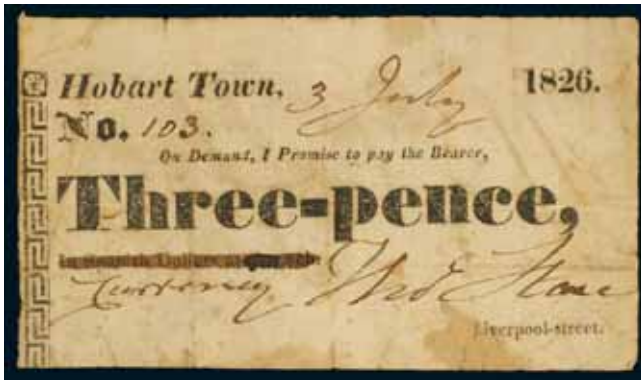 Hobart Town, 3 July 1826.
No. 103.
On Demand, I Promise to pay the Bearer,
Three-pence,
in Spanish Dollars at
Currency Thos Stone
Liverpool-street.